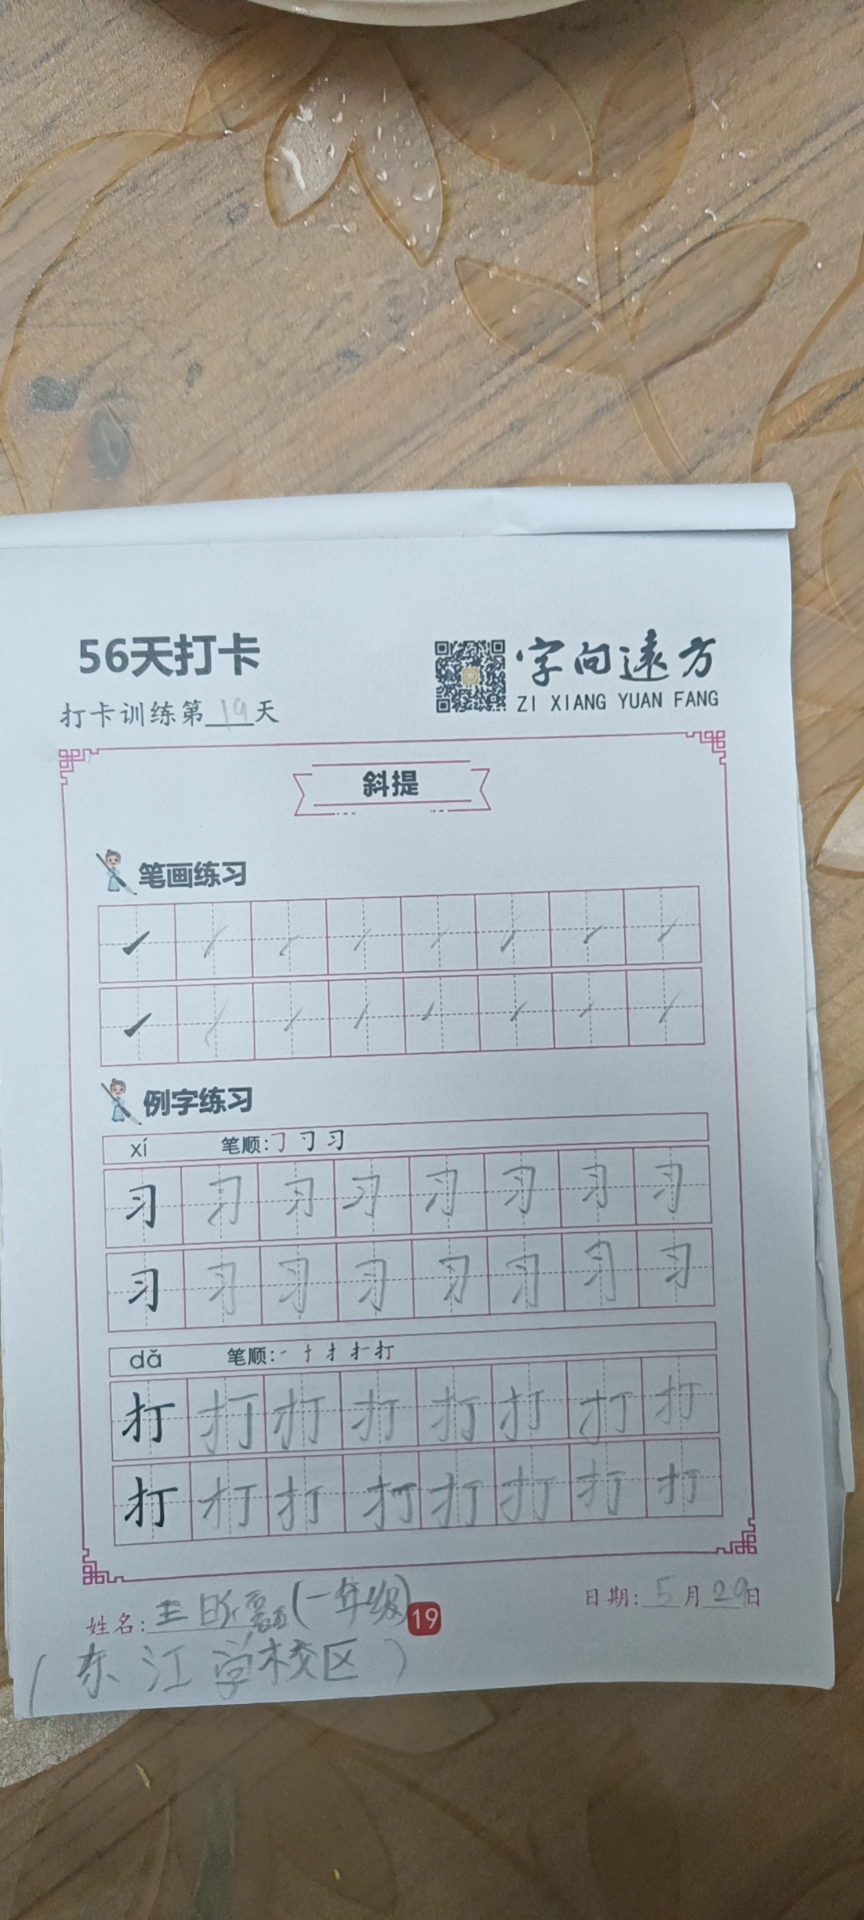 56天打卡
字向远方
ZI XIANG YUAN FANG
打卡训练第19天
斜提
笔画练习
例字练习
xí 笔顺:
习 习 习 习 习 习 习 习
习 习 习 习 习 习 习 习
dǎ 笔顺: 一 十 扌 扌 打
打 打 打 打 打 打 打 打
打 打 打 打 打 打 打 打
姓名: (一年级)
19
日期: 5月29日
(东江学校区)